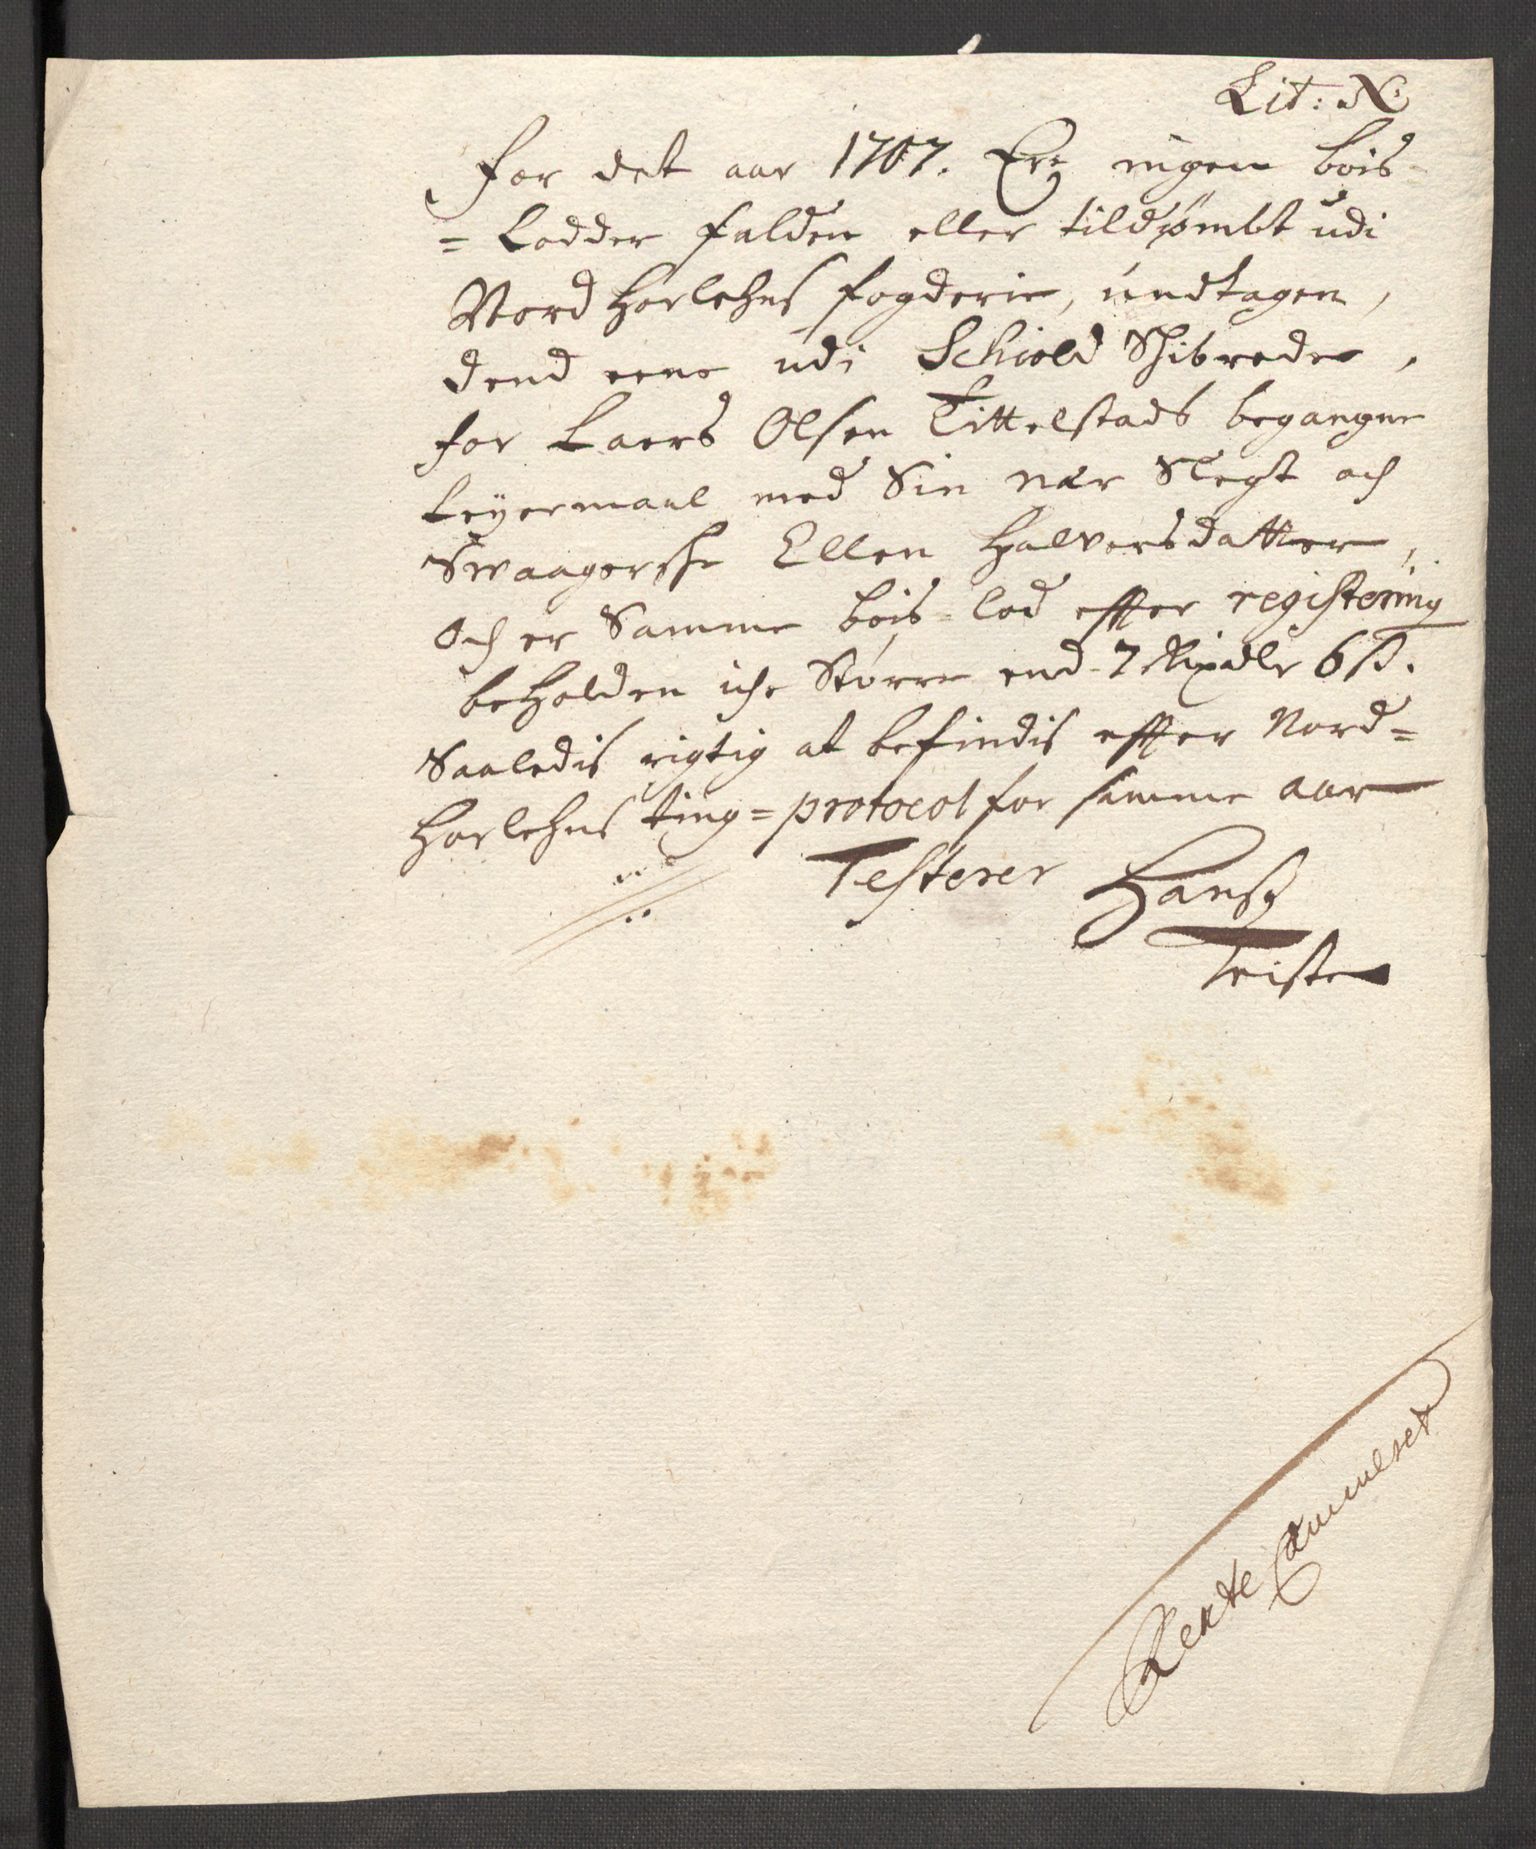 Lit: N:
for det aar 1707. Ere ingen bois
= Lodder falden eller tildømbt udi
Nord Horlehns fogderie, undtagen,
dend eene udi Schiold Schibrede,
for Laers Olsen Tittelstads begangne
Leyermaal med Sin nær Slegt och
Swaagersche Ellen Halvorsdatter,
Och er Samme bois-lod effter registering
beholden iche Større end 7 Rixdlr 6 ß.
Saaledis rigtig at befindis effter Nord=
Horlehns ting=protocol for samme aar
Testerer Hansz
Teiste
Rente Cammeret